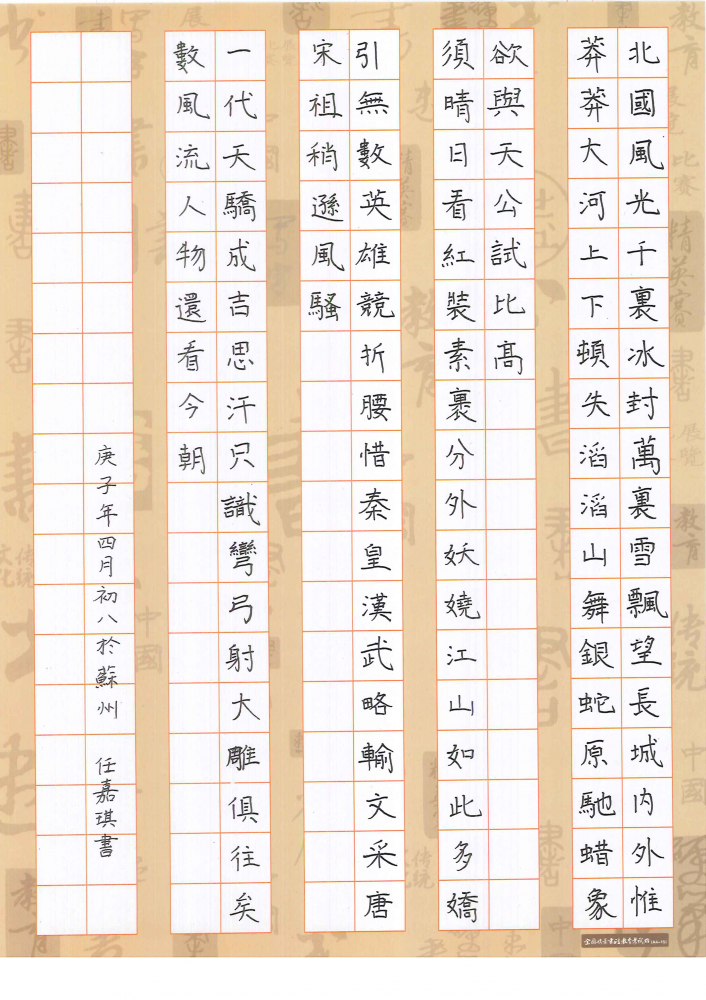 北國風光千裏冰封萬裏雪飄望長城内外惟
莽莽大河上下頓失滔滔山舞銀蛇原馳蜡象
欲與天公試比高
須晴日看紅裝素裹分外妖嬈江山如此多嬌
引無數英雄競折腰惜秦皇漢武略輸文采唐
宋祖稍遜風騷
一代天驕成吉思汗只識彎弓射大雕俱往矣
數風流人物還看今朝
庚子年四月初八於蘇州 任嘉琪書